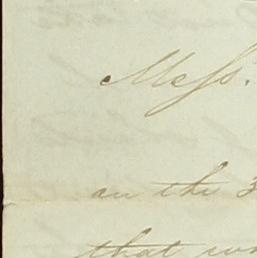 Mess.
on the 3
that